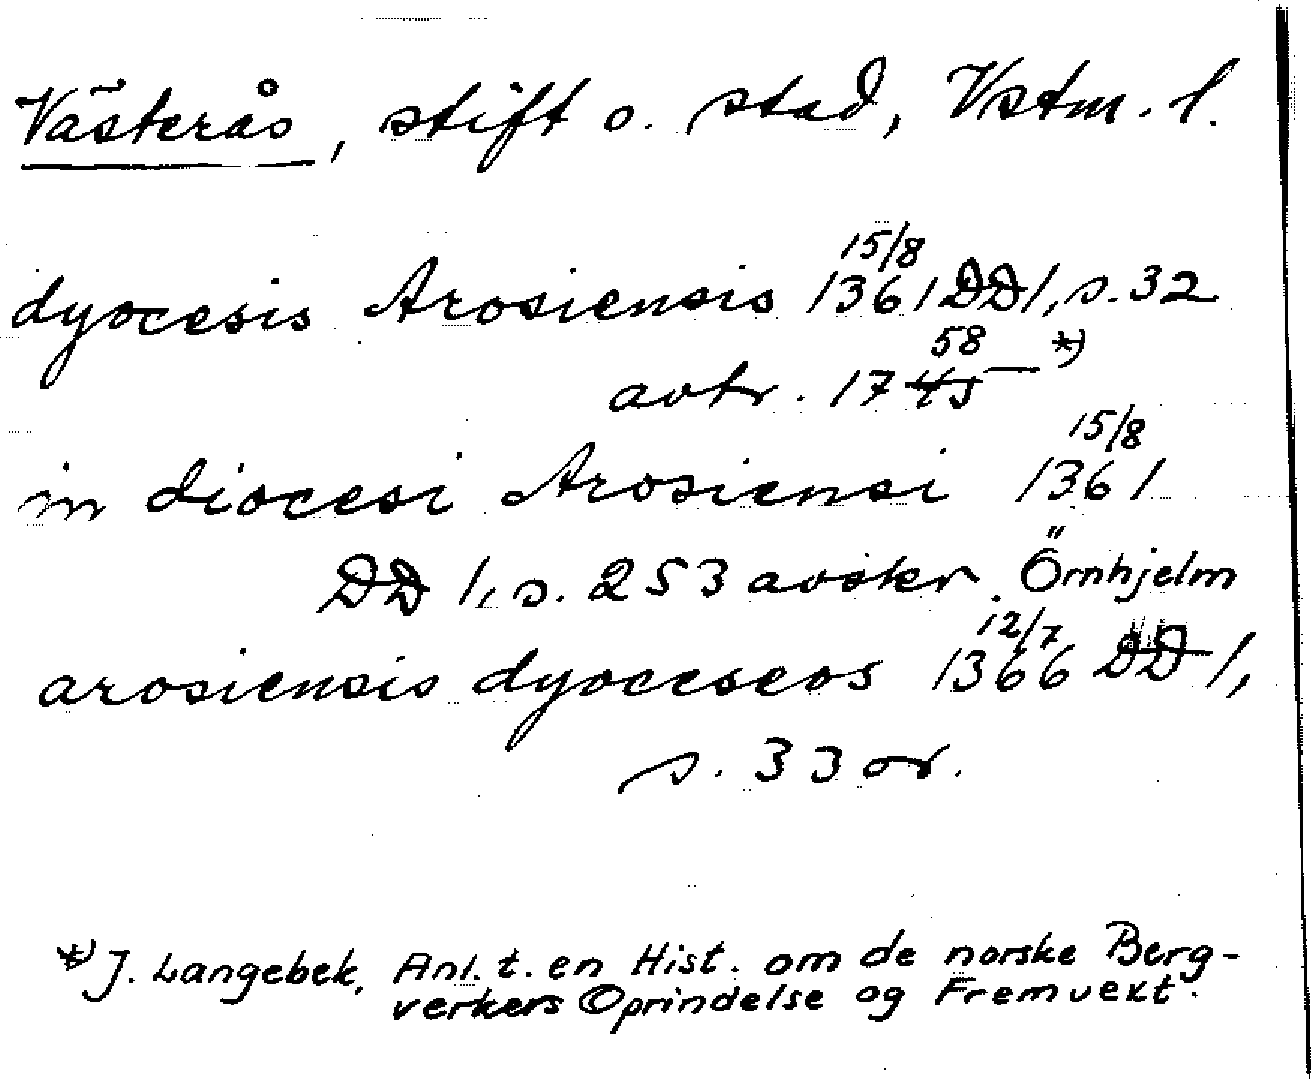 Västerås, stift o. stad, Vstm. l.
dyocesis Arosiensis 15/8 1361 DD 1, s. 32
avtr. 1758 *)
in diocesi Arosiensi 15/8 1361
DD 1, s. 253 avskr. Örnhjelm
arosiensis dyoceseos 12/7 1366 DD 1,
s. 33 or.
*) J. Langebek, Anl. t. en Hist. om de norske Berg-
verkers Oprindelse og Fremvext.